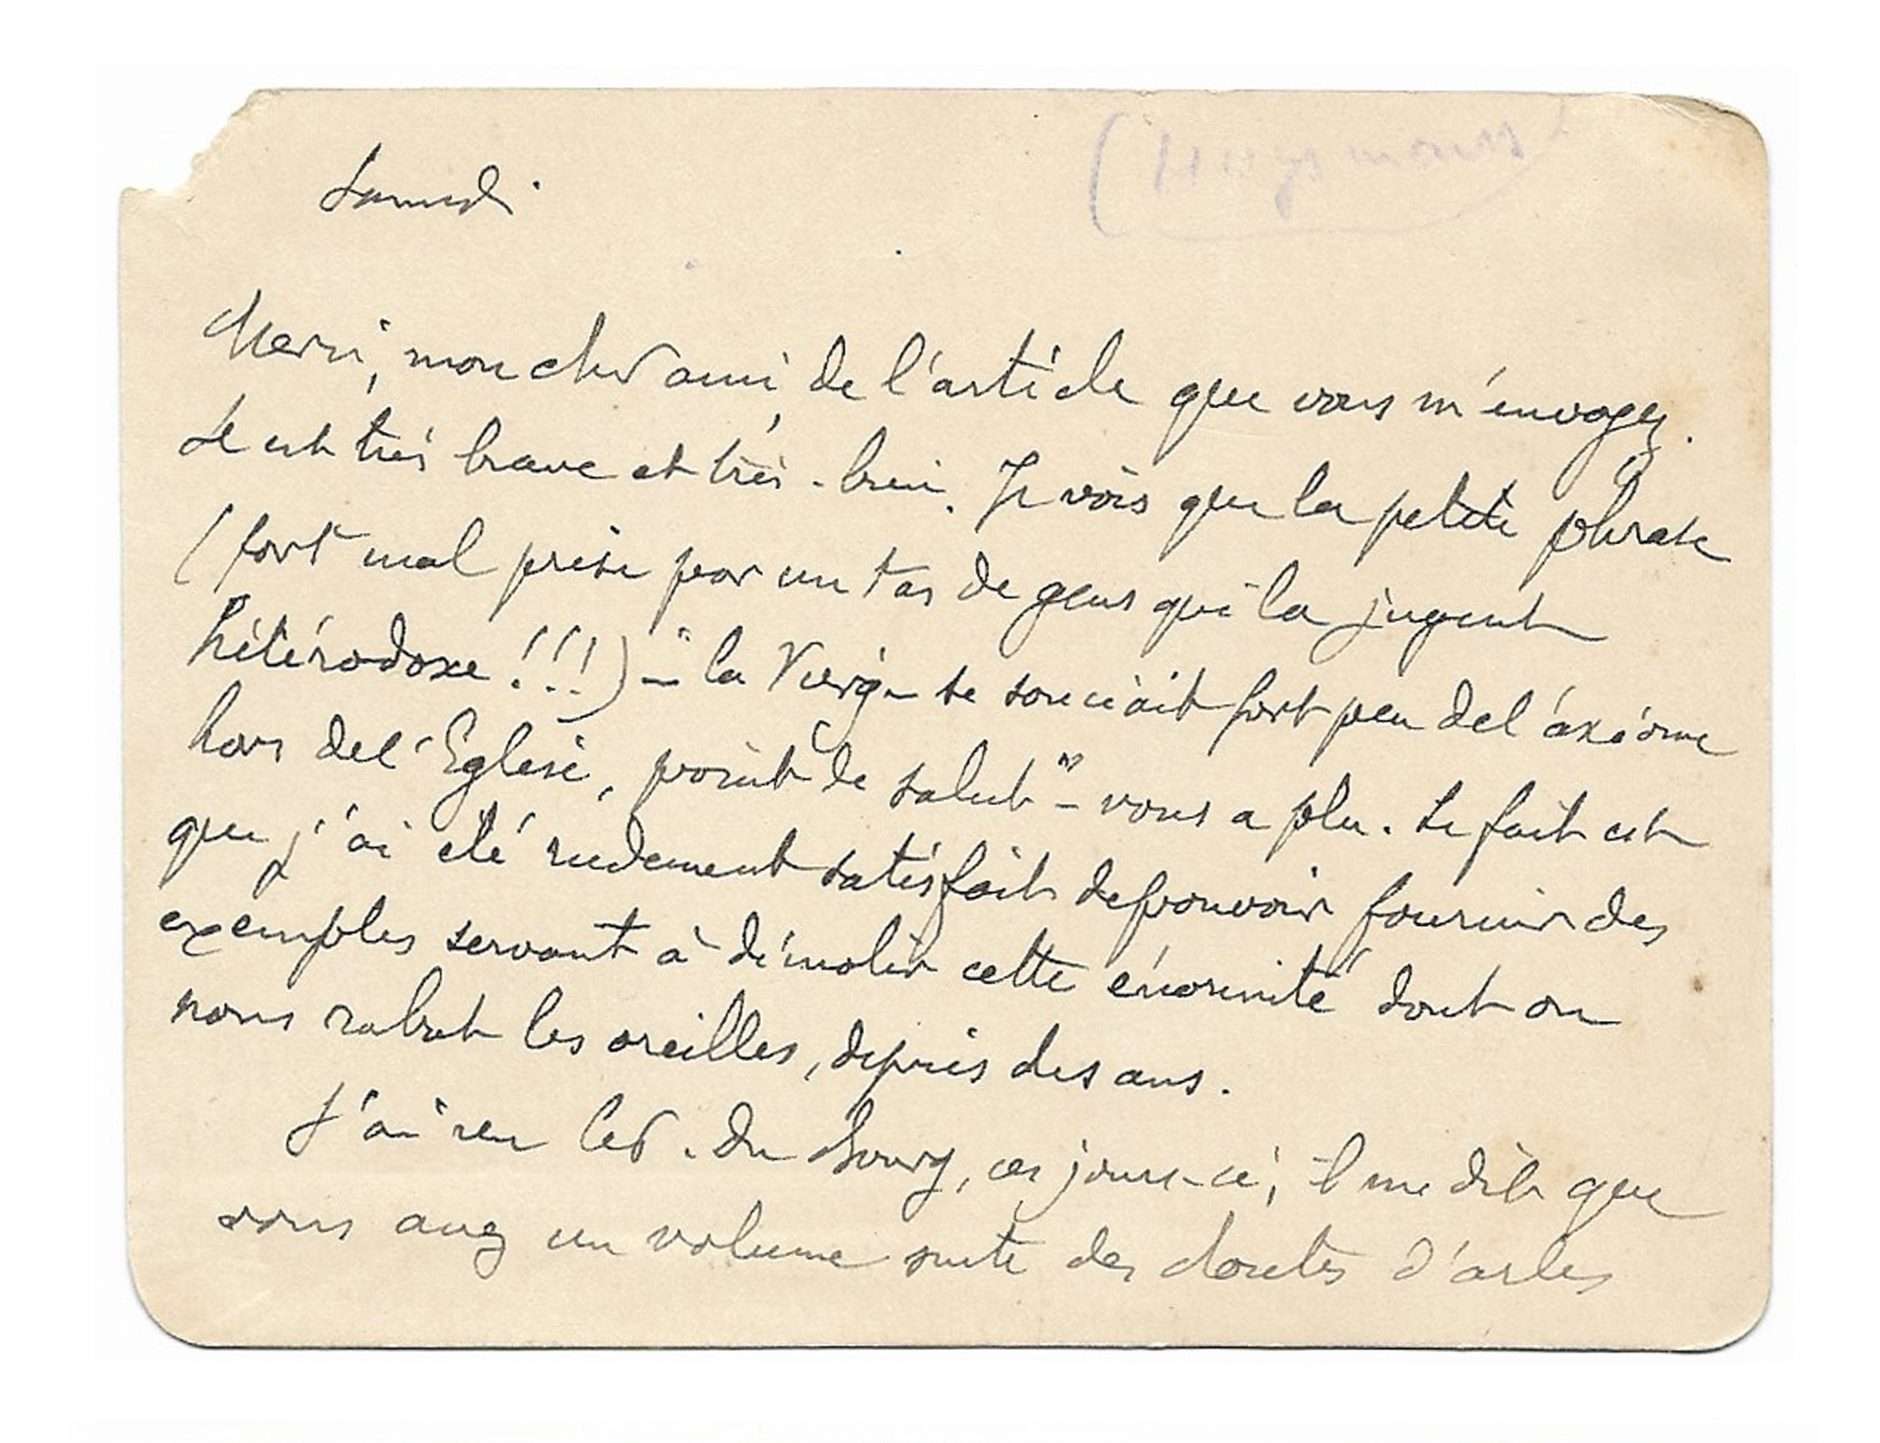 (Huysmans)
Samedi
Merci, mon cher ami, de l'article que vous m'envoyez.
Il est très brave et très-bien. Je vois que la petite phrase
(fort mal prise par un tas de gens qui la jugent
hétérodoxe!!!) — "la Vierge se souciait fort peu de l'axiôme
hors de l'Eglise, point de salut" — vous a plu. Le fait est
que j'ai été rudement satisfait de pouvoir fournir des
exemples servant à démolir cette énormité dont on
nous rabat les oreilles, depuis des ans.
J'ai vu . du Bourg, ces jours-ci; il me dit que
vous avez un volume suite des d'arles